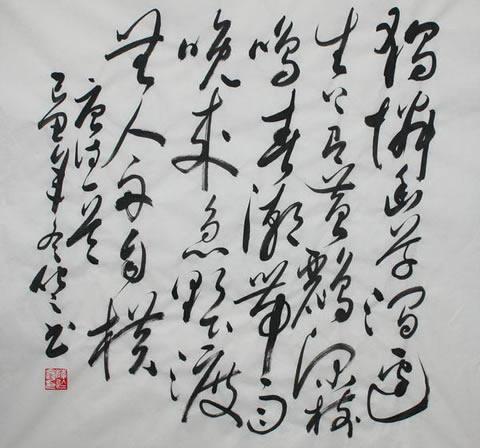 獨憐幽草澗邊
生上有黃鸝深樹
鳴春潮帶雨
晚來急野渡
無人舟自橫
唐詩一首
己丑年冬書